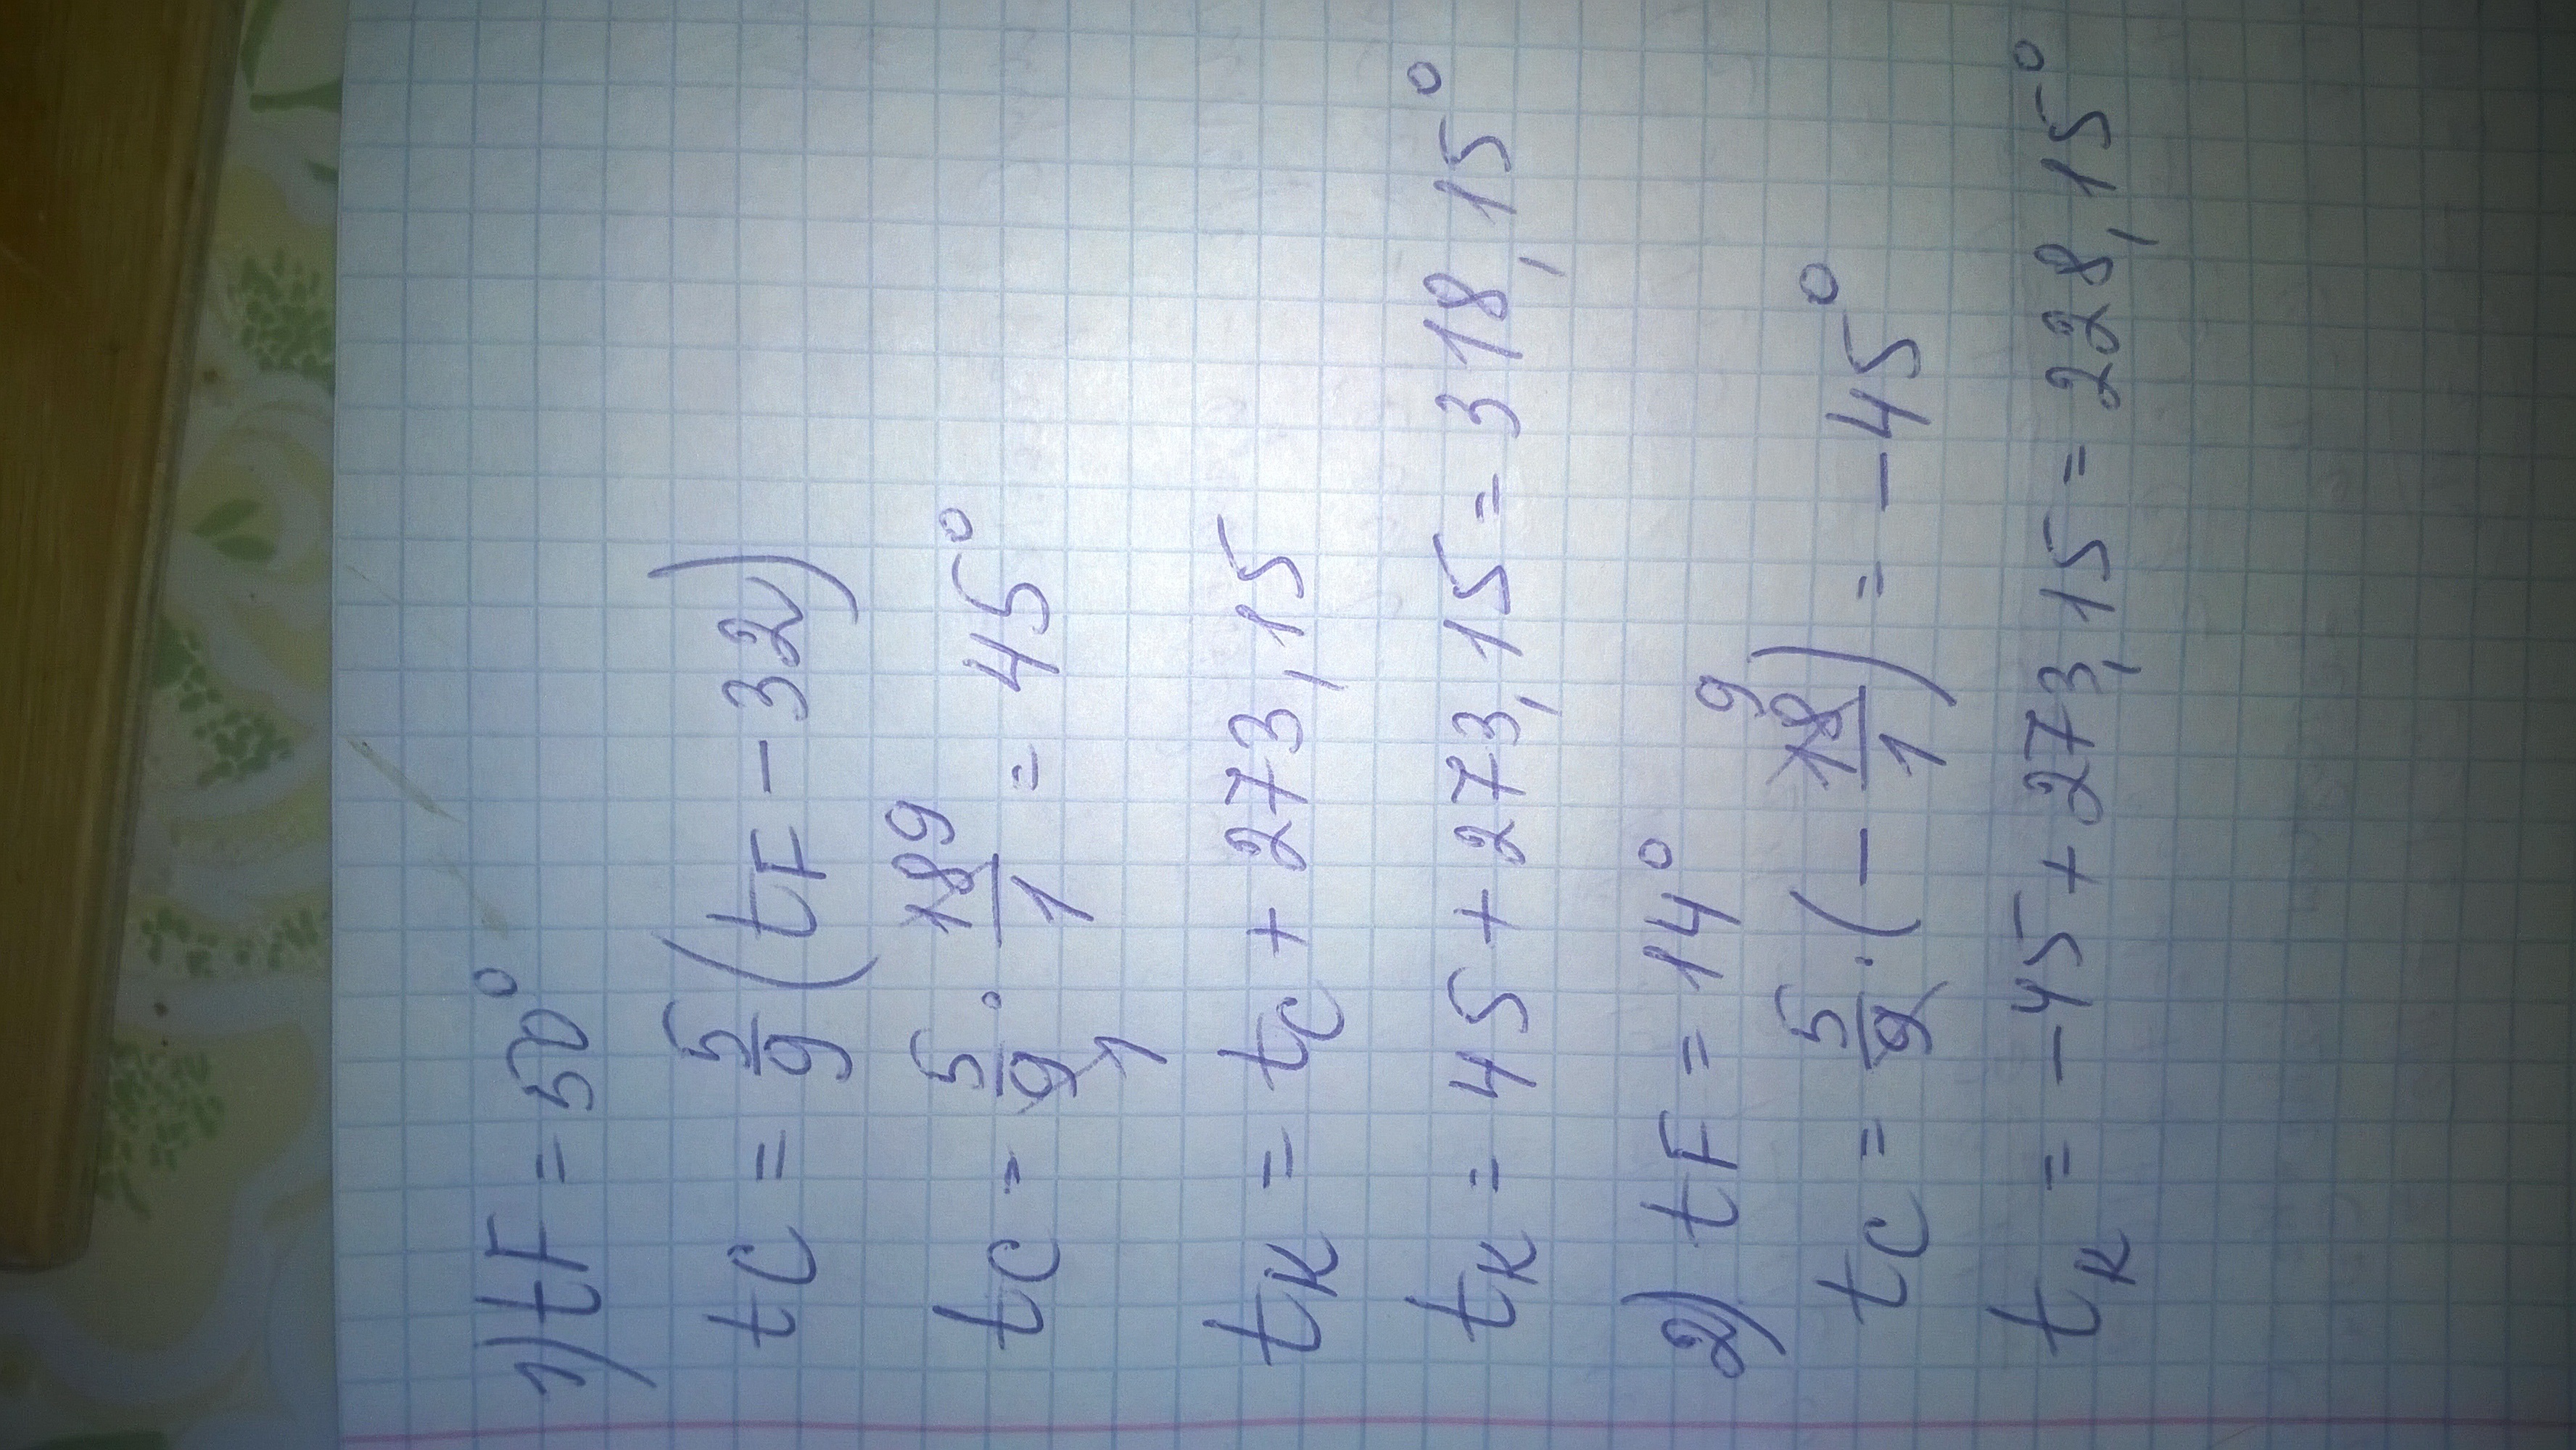 1) tF = 50°
tC = 5/9 (tF - 32)
tC = 5/9 1 · 18 9/1 = 45°
tK = tC + 273,15
tK = 45 + 273,15 = 318,15°
2) tF = 14°
tC = 5/9 · (- 18 9/1) = -45°
tK = -45 + 273,15 = 228,15°